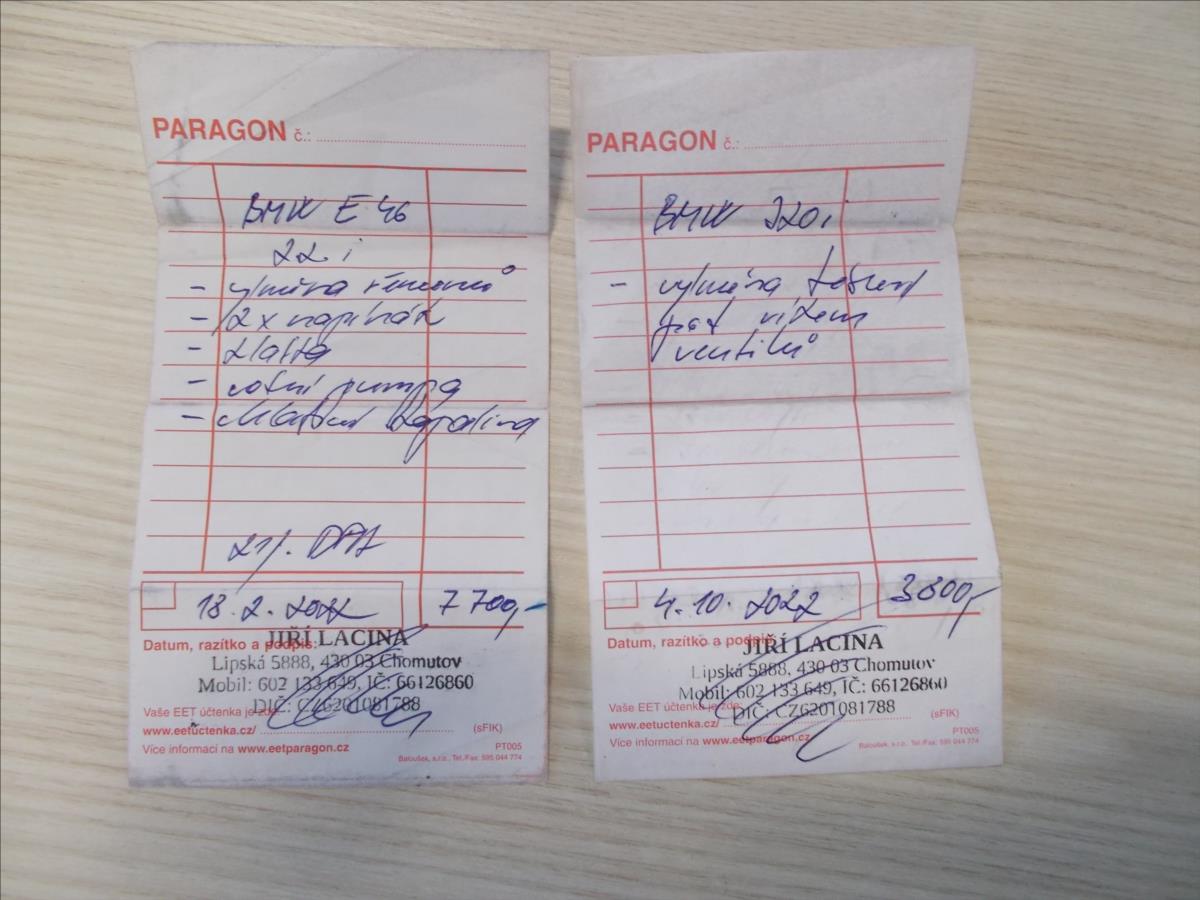 PARAGON č.:
BMW E 46
22 i
- výměna řemenů
- 2x napínák
- kladka
- vodní pumpa
- chladící kapalina
21%. DPH
18.2.2022 7 700,-
Datum, razítko a podpis:
JIŘÍ LACINA
Lipská 5888, 430 03 Chomutov
Mobil: 602 133 649, IČ: 66126860
DIČ: CZ6201081788
Vaše EET účtenka je zde
www.eetuctenka.cz/ (sFIK)
Více informací na www.eetparagon.cz
PT005
Baloušek, s.r.o., Tel./Fax: 595 044 774
PARAGON č.:
BMW 320i
- výměna těsnění
pod víkem
ventilů
4.10.2022 3 800,-
Datum, razítko a podpis:
JIŘÍ LACINA
Lipská 5888, 430 03 Chomutov
Mobil: 602 133 649, IČ: 66126860
DIČ: CZ6201081788
Vaše EET účtenka je zde
www.eetuctenka.cz/ (sFIK)
Více informací na www.eetparagon.cz
PT005
Baloušek, s.r.o., Tel./Fax: 595 044 774